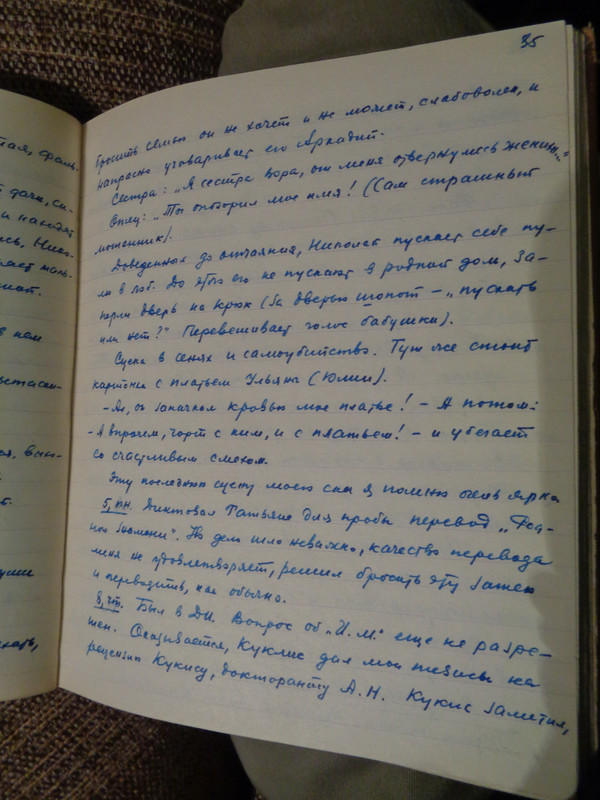 35
бросить семью он не хочет и не может, слабоволен, и
напрасно уговаривает его Аркадий.
Сестра: „Я сестра вора, от меня отвернулись женихи..."
Отец: „Ты опозорил мое имя! (Сам страшный
мошенник).
Доведенный до отчаяния, Николай пускает себе пу-
лю в лоб. До этого его не пускают в родной дом, за-
перли дверь на крюк (За дверью шопот – „пускать
или нет?" Перевешивает голос бабушки).
Сцена в сенях и самоубийство. Тут же стоит
картонка с платьем Ульяны (Юлии).
– Ах, он запачкал кровью мое платье! – А потом:
– А впрочем, чорт с ним, и с платьем! – и убегает
со счастливым смехом.
Эту последнюю сцену моего сна я помню очень ярко
5, пн. Диктовал Татьяне для пробы перевод
Но дело шло неважно, качество перевода
меня не удовлетворяет, решил бросить эту затею
и переводить, как обычно.
8, чт. Был в ДИ. Вопрос об „И.М." еще не разре-
шен. Оказывается, Куклис дал мои тезисы на
рецензию Кукису, докторанту А.Н. Кукис заметил,
тая, фаль-
дачи, си-
и находят
ает маль-
в нем
ая, вын-